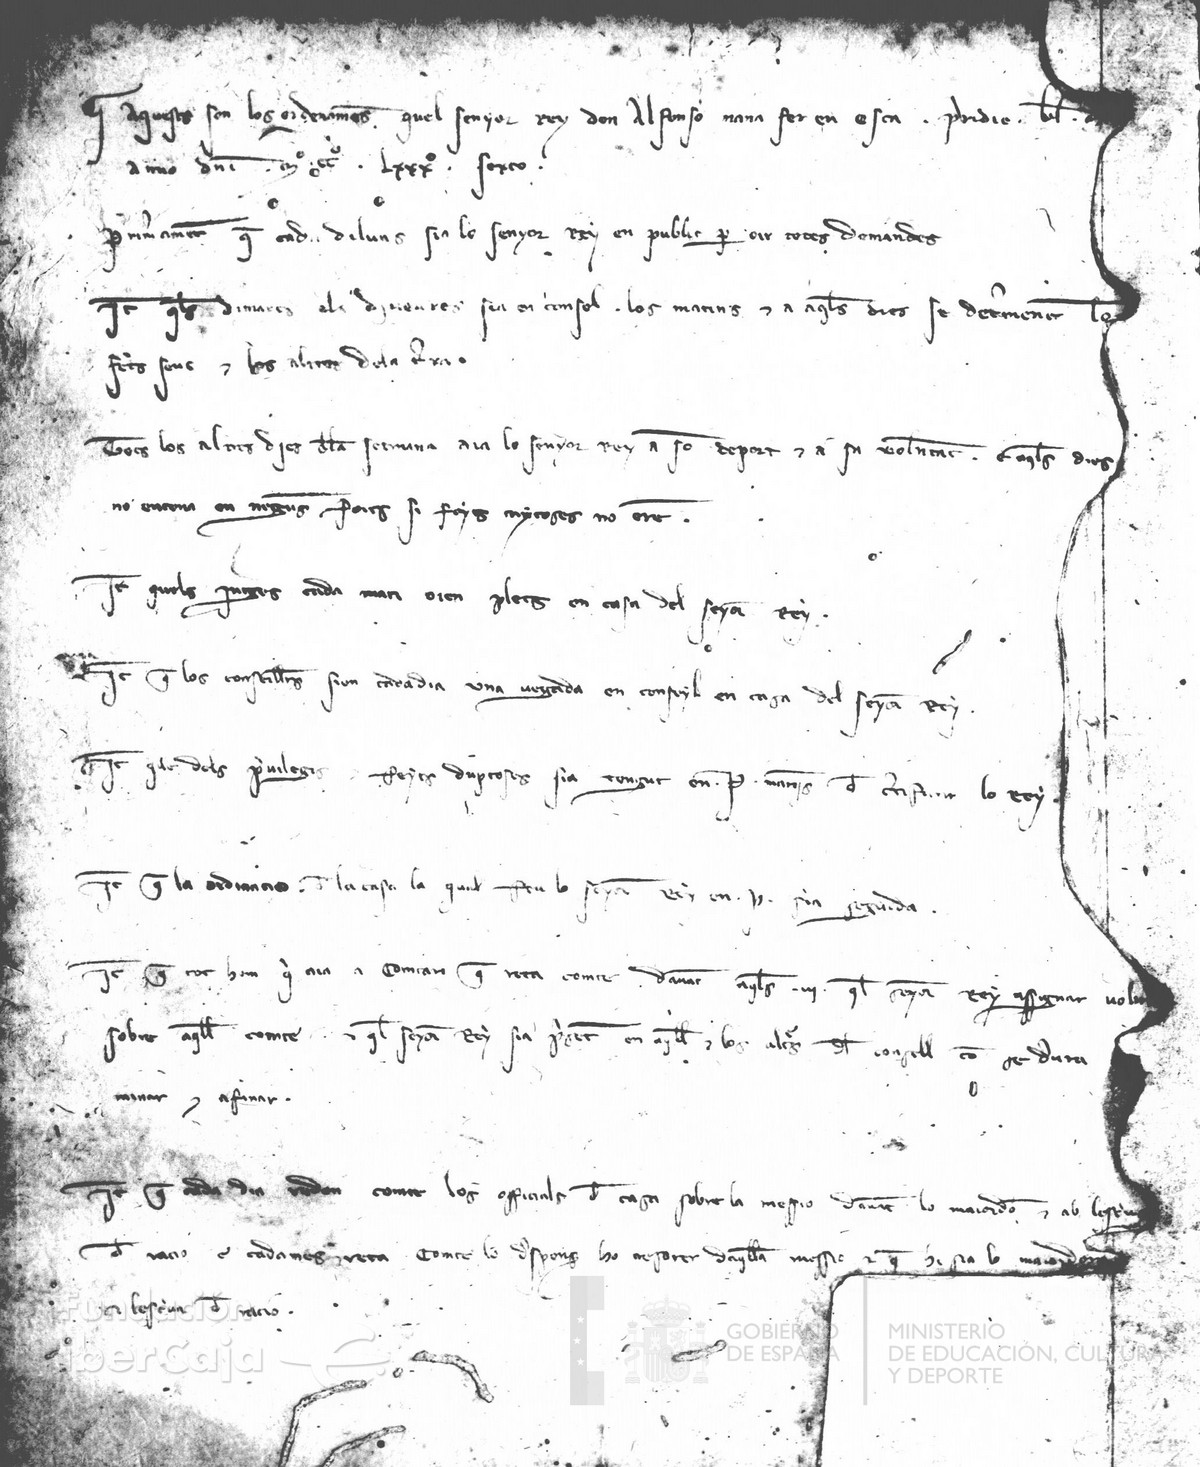 Aquests son los ordenamens quel senyor Rey don Alfonso mana fer en Osca . pridie . kl .
Anno dni . mº . ccº . Lxxxº . sexto .
Primament q cada diluns sia lo senyor Rey en public p oir totes demandes
It qls dimarts els digeous sia en consel . los matins e a aqls dies se determenen lo
fets seus e los altres dela tra .
Tots los altres dies dla setmana aia lo senyor Rey a so deport e a sa volentat . e aqls dies
no entena en negus fets si fets cuytoses no ere .
It quels jutges cada mati oien plets en casa del senyor Rey .
It q los consellers sien cadadia una vegada en conseyl en casa del senyor Rey .
It que dels privilegis feyts duptoses sia tengut en . P . martis d certificar lo Rey .
It q la ordinacio . d la casa la qual feu lo senyor Rey en . P . sia seguida .
It q tot hom qi aia a comtar q reta comte davant aqls . iii . ql senyor Rey assignar volra
sobre aqll comte e ql senyor Rey sia present en aqll e los altres dl consell co se deura
minar e afinar .
It q cada dia reden comte los officials d casa sobre la messio davant lo maiordom e ab lescriva
d racio e cadames reta comte lo despens ho tresorer daqlla messio e q hi sia lo maiordom
et lescriva d racio .
Fundación
iberCaja
GOBIERNO
DE ESPAÑA
MINISTERIO
DE EDUCACIÓN, CULTURA
Y DEPORTE